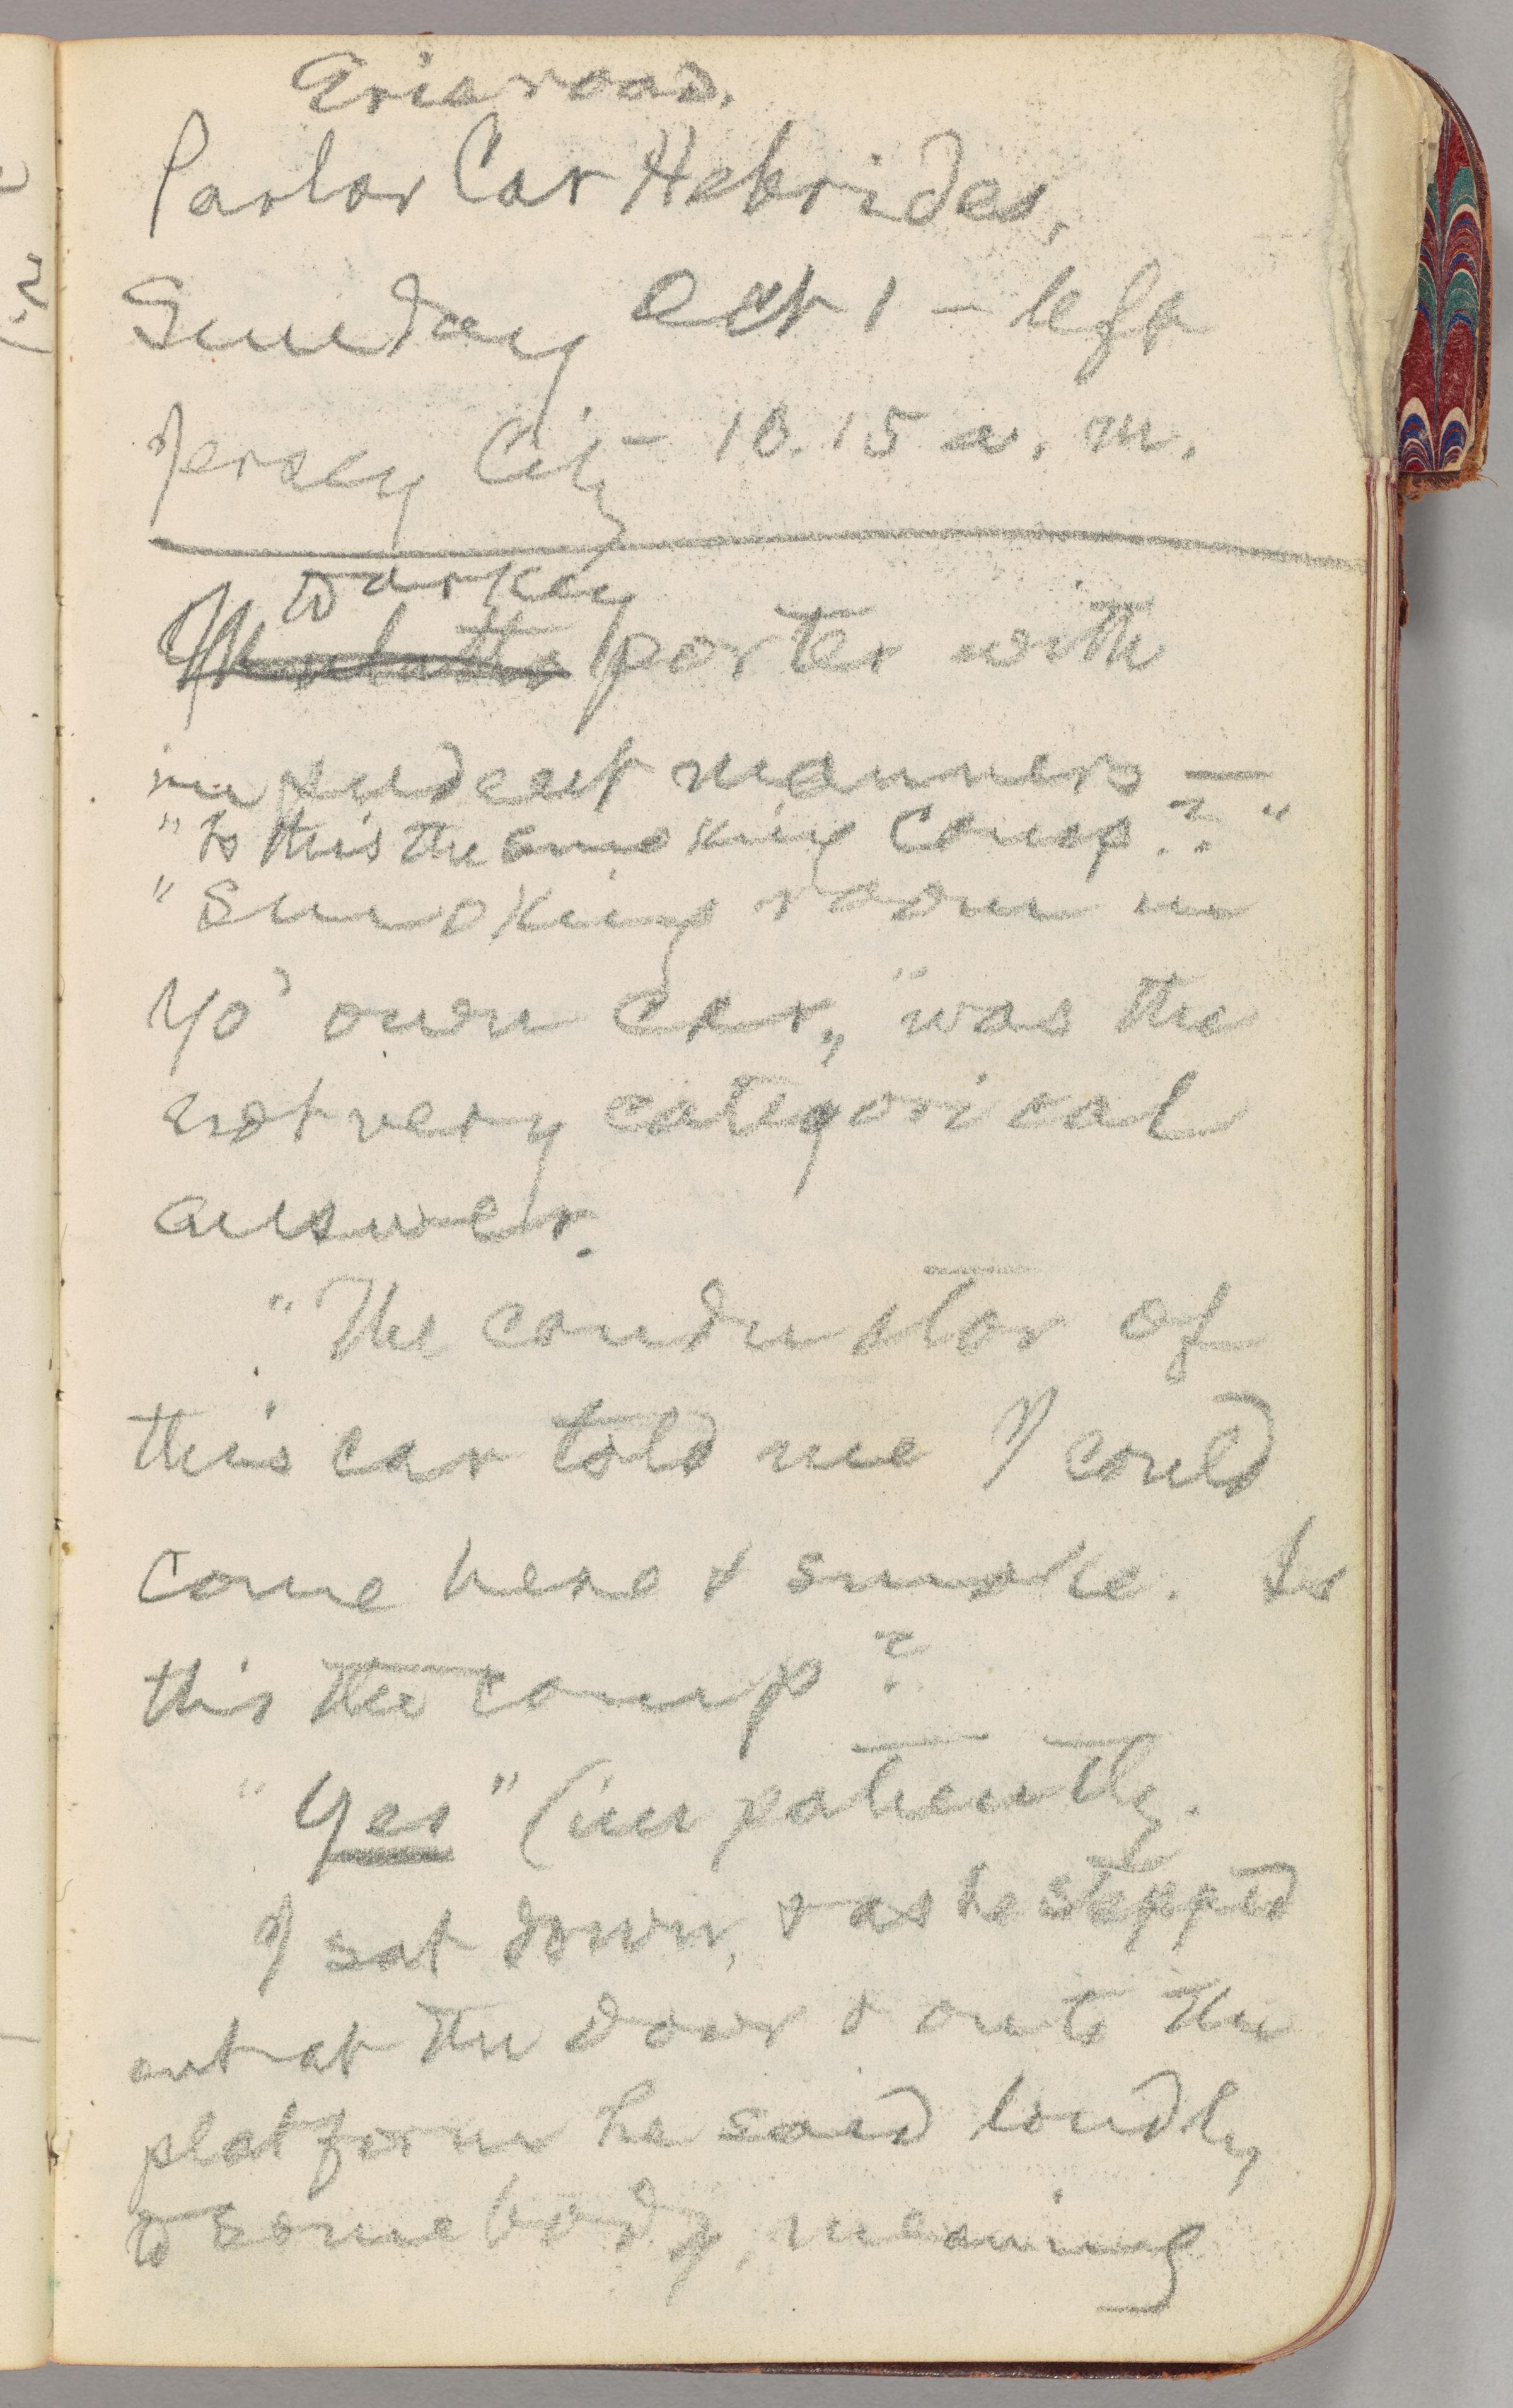 Erie road.
Parlor Car Hebrides,
Sunday Oct 1 — left
Jersey City — 10.15 a. m.
Darkey
Mulatto porter with
impudent manners —
"Is this the smoking comp.?"
"Smoking room in
yo' own car," was the
not very categorical
answer.
"The conductor of
this car told me I could
come here & smoke. Is
this the comp?
"Yes" (impatiently.
I sat down, & as he stepped
out at the door & onto the
platform he said loudly
to somebody, meaning